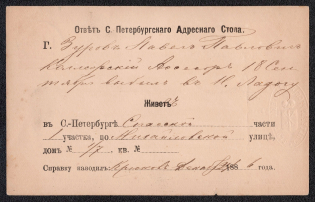 Отвѣтъ С. Петербургскаго Адреснаго Стола.
Г. Зуровъ Павелъ Павловичъ
Коллежскій Ассесоръ 18 Сен
тября выбылъ въ Н. Ладогу
Живетъ
въ С.-Петербургѣ Спасской части
1 участка, по Михайловской улицѣ,
домъ № 1/7 кв. №
Справку наводилъ: 188 6 года.